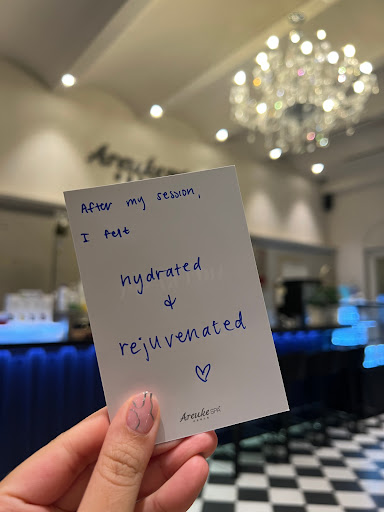 Areuke
After my session,
I felt
hydrated
&
rejuvenated
Areuke SPA